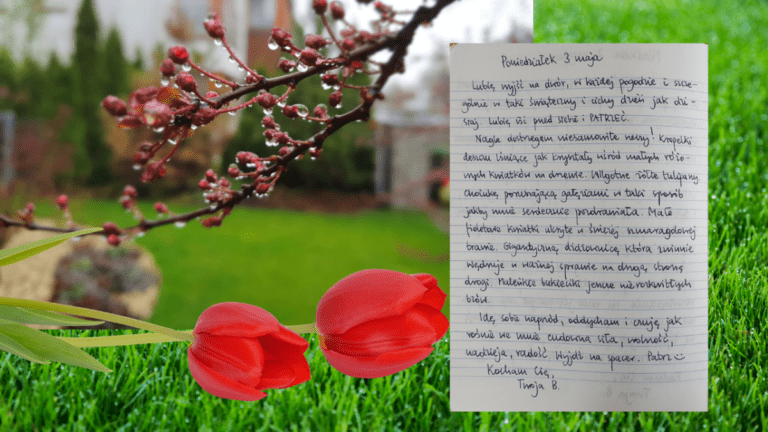 Poniedziałek 3 maja
Lubię wyjść na dwór, w każdej pogodzie i szcze-
gólnie w taki świąteczny i cichy dzień jak dzi-
siaj. Lubię iść przed siebie i PATRZEĆ.
Nagle dostrzegam niesamowite rzeczy! Kropelki
deszczu lśniące jak kryształy wśród małych różo-
wych kwiatków na drzewie. Wilgotne żółte tulipany
Choinkę, poruszającą gałęziami w taki sposób
jakby mnie serdecznie pozdrawiała. Małe
fioletowe kwiatki ukryte w świeżej szmaragdowej
trawie. Gigantyczną dżdżownicę, która zwinnie
wędruje w ważnej sprawie na drugą stronę
drogi. Maleńkie bukieciki jeszcze nierozkwitłych
bzów.
Idę sobie naprzód, oddycham i czuję jak
rośnie we mnie cudowna siła, wolność,
nadzieja, radość. Wyjdź na spacer. Patrz
Kocham Cię,
Twoja B.